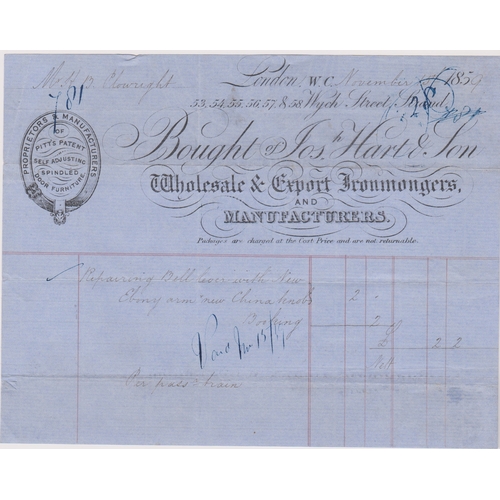 London, W.C. November 1856
Mr H B Plowright
781
53, 54, 55, 56, 57, & 58 Wych Street, Strand,
Bought of Josh. Hart & Son
Wholesale & Export Ironmongers,
AND
MANUFACTURERS.
Packages are charged at the Cost Price and are not returnable.
PROPRIETORS & MANUFACTURERS
OF
PITT'S PATENT
SELF ADJUSTING
SPINDLED
DOOR FURNITURE
Repairing Bell lever with New
Ebony arm new China knob 2 "
Booking 2
£ 2 2
Per train